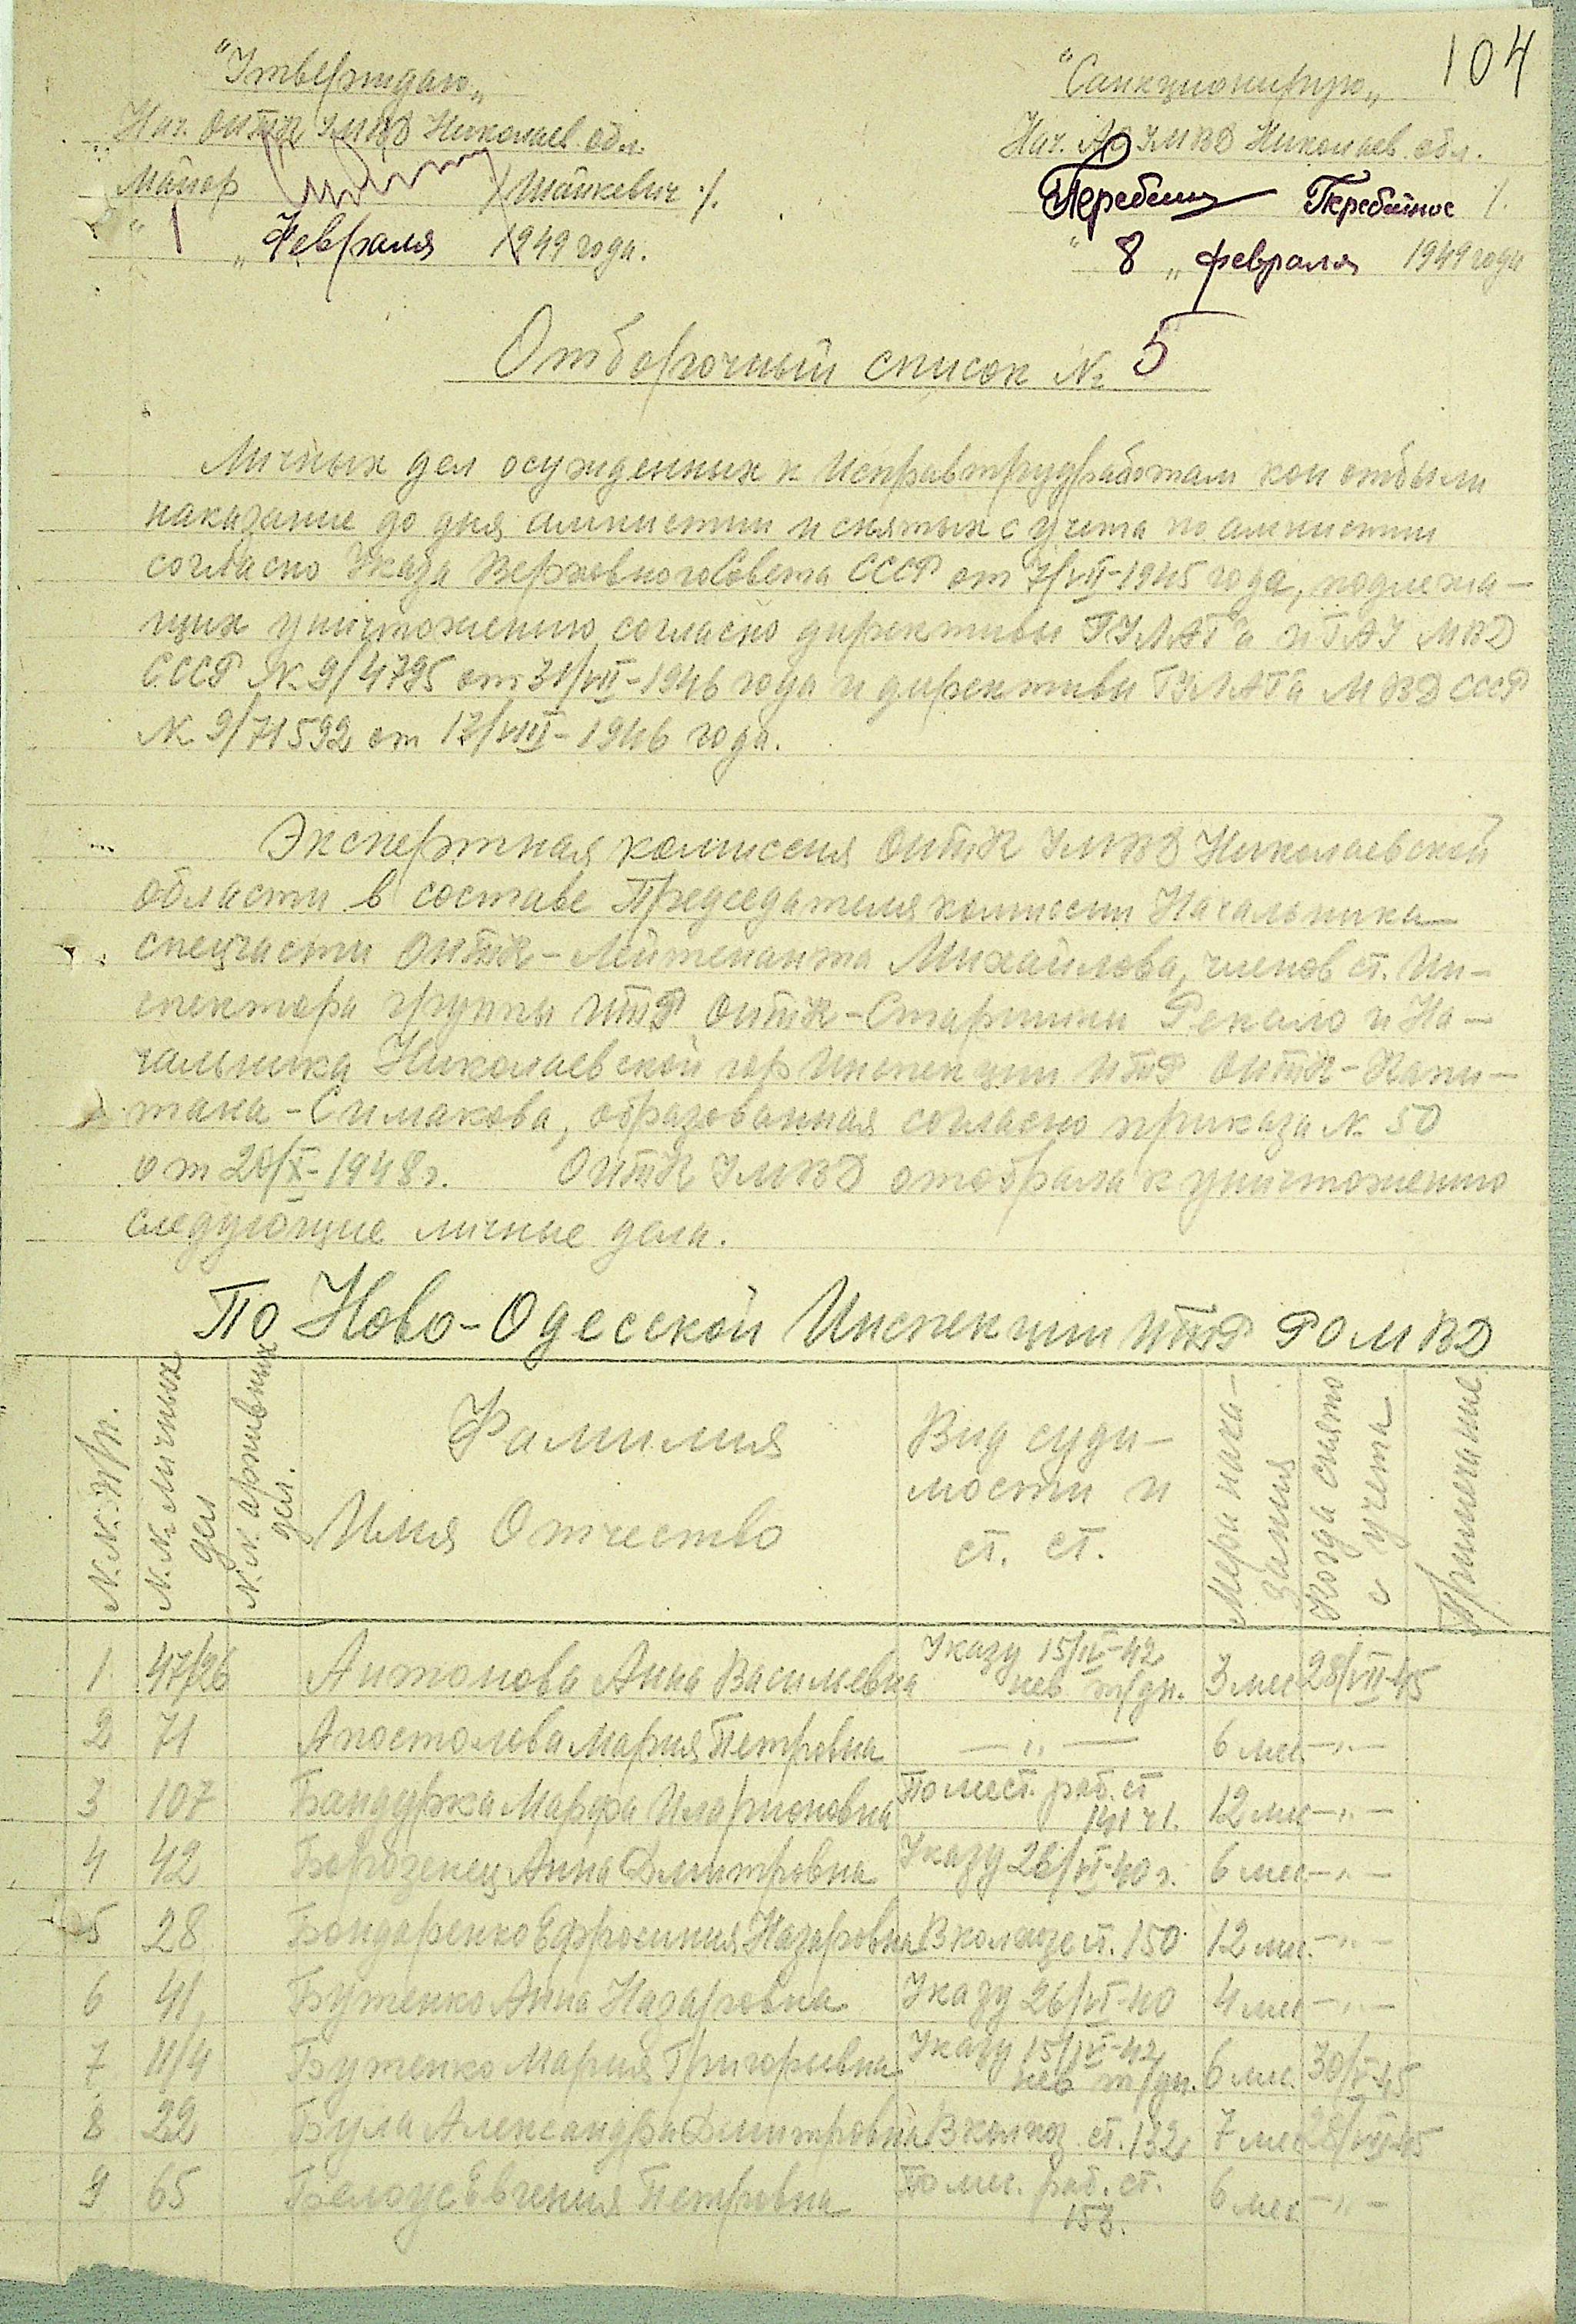 104
"Утверждаю"
Нач. ОИТК УМВД Николаев. обл.
Майор /Шайкевич/.
"1" Февраля 1949 года.
"Санкционирую"
Нач. АО УМВД Николаев. обл.
Перебейнос /.
"8" февраля 1949 года
Отборочный список № 5
Личных дел осужденных к Исправтрудработам кои отбыли
наказание до дня амнистии и снятых с учета по амнистии
согласно Указа Верховного Совета СССР от 7/VII-1945 года, подлежа-
щих уничтожению согласно директивы ГУЛАГ'а и ГАУ МВД
СССР № 9/4795 от 31/VII-1946 года и директивы ГУЛАГа МВД СССР
№ 9/71592 от 17/VIII-1946 года.
Экспертная комиссия ОИТК УМВД Николаевской
области в составе Председателя комиссии Начальника
спецчасти ОИТК - Лейтенанта Михайлова, членов ст. Ин-
спектора группы ИТР ОИТК - Старшины Рекало и На-
чальника Николаевской гор Инспекции ИТР ОИТК - Капи-
тана - Симакова, образованная согласно приказа № 50
от 20/X-1948 г. ОИТК УМВД отобрала к уничтожению
следующие личные дела.
По Ново-Одесской Инспекции ИТР РО МВД
№.№. п/п. №.№ личных дел №.№. архивных дел. Фамилия Имя Отчество Вид суди-мости и ст. ст. Мера нака-зания Когда снято с учета Примечание
1. 47/26 Антонова Анна Васильевна Указу 15/IV-42 нев тр/дн. 3 мес 28/VII-45
2 71 Апостолова Мария Петровна —"— 6 мес. —"—
3 107 Бандурка Марфа Иларионовна По мест. раб. ст 141 ч1. 12 мес —"—
4 42 Борозенец Анна Дмитровна Указу 26/VI-40 г. 6 мес. —"—
5 28 Бондаренко Ефросиния Назаровна В колхозе ст. 150 12 мес. —"—
6 41, Бутенко Анна Назаровна Указу 26/VI-40 4 мес —"—
7 11/4 Бутенко Мария Григорьевна Указу 15/IV-42 нев тр/дн. 6 мес. 30/V-45
8 22 Була Александра Дмитровна В колхоз. ст. 132 7 мес 28/VII-45
9 65 Белоус Евгения Петровна По мес. раб. ст. 153. 6 мес. —"—